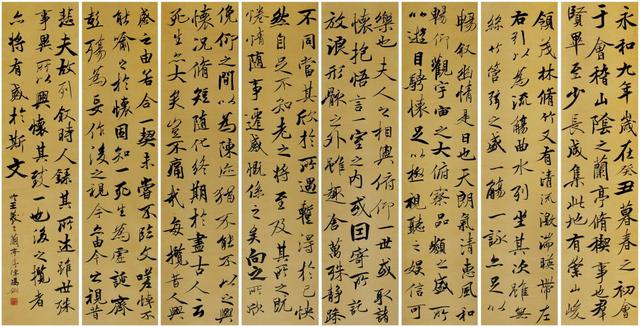 永和九年歲在癸丑暮春之初會
于會稽山陰之蘭亭脩稧事也羣
賢畢至少長咸集此地有崇山峻
領茂林脩竹又有清流激湍暎帶左
右引以為流觴曲水列坐其次雖無
絲竹管弦之盛一觴一詠亦足以
暢叙幽情是日也天朗氣清惠風和
暢仰觀宇宙之大俯察品類之盛所
以遊目騁懷足以極視聽之娛信可
樂也夫人之相與俯仰一世或取諸
懷抱悟言一室之內或因寄所託
放浪形骸之外雖趣舍萬殊靜躁
不同當其欣於所遇蹔得於己快
然自足不知老之將至及其所之既
惓情隨事遷感慨係之矣向之所欣
俛仰之間以為陳迹猶不能不以之興
懷況脩短隨化終期於盡古人云
死生亦大矣豈不痛哉每攬昔人興
感之由若合一契未嘗不臨文嗟悼不
能喻之於懷固知一死生為虛誕齊
彭殤為妄作後之視今亦由今之視昔
悲夫故列叙時人錄其所述雖世殊
事異所以興懷其致一也後之攬者
亦將有感於斯文